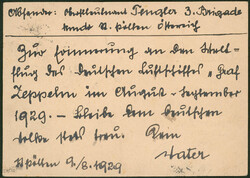 Absender: Oberstleutnant Fenzler 3. Brigade
St. Pölten Österreich
Zur Erinnerung an den Welt-
flug des Deutschen Luftschiffes „Graf
Zeppelin im August-September
1929. – Bleibe dem deutschen
Volke stets treu. Dein
Vater
St. Pölten 9./8. 1929